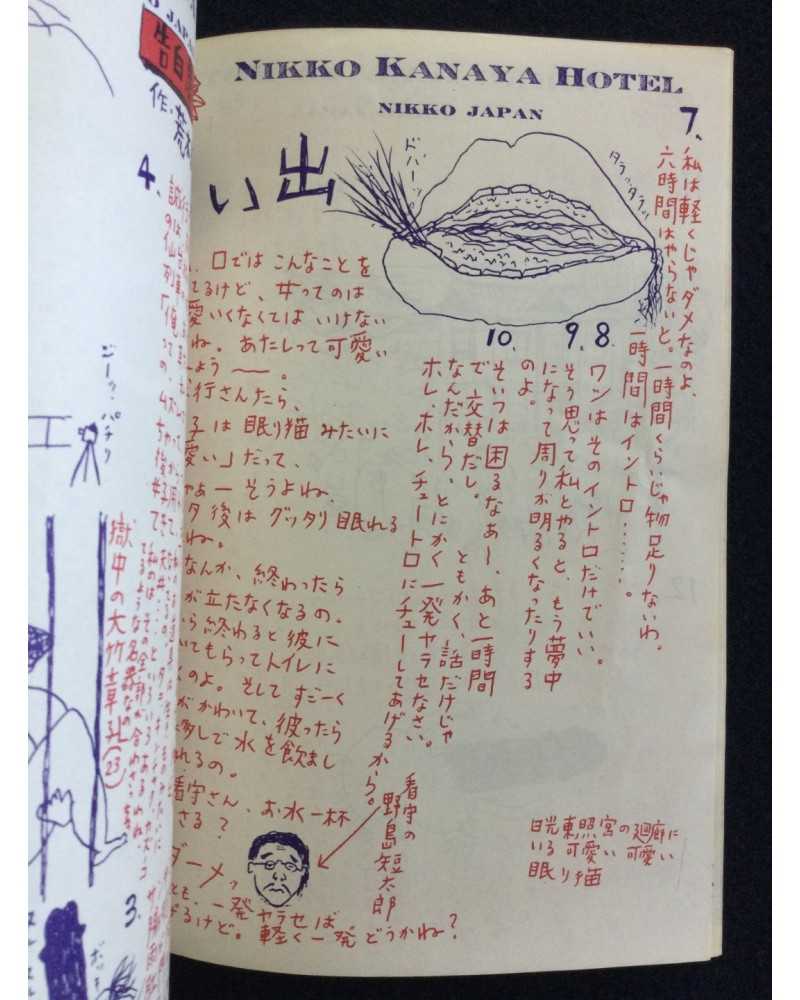 NIKKO KANAYA HOTEL
NIKKO JAPAN
告白
作・荒木
い出
ドバーッ
タラッタラッ
7、
私は軽くじゃダメなのよ、
六時間はやらないと。一時間くらいじゃ物足りないわ。
一時間はイントロ……。
8、
ワンはそのイントロだけでいい。
9、
そう思って私とやると、もう夢中
になって周りが明るくなったりする
のよ。
10、
そいつは困るなあー、あと一時間
で交替だし。ともかく、話だけじゃ
なんだから、とにかく一発ヤラセなさい。
ホレ、ホレ、チュートロにチューしてあげるから。
、口では こんなことを
てるけど、女ってのは
愛いくなくては いけない
ね。あたしって可愛い
しょう ー。
行さんたら、
子は眠り猫みたいに
愛い」だって、
やあー そうよね、
タ後は グッタリ眠れる
ね。
なんか、終わったら
が立たなくなるの。
ら終わると彼に
いてもらってトイレに
くのよ。そして すごーく
がかわいて、彼ったら
移しで水を飲まし
れるの。
看守さん、お水一杯
さる?
ダーメッ
とも、一発ヤラセば
げるけど。軽く一発どうかね?
看守の
野島短太郎
日光東照宮の廻廊に
いる 可愛い 可愛い
眠り猫
4、
ジーッ・パチリ
獄中の大竹章子
23
3、